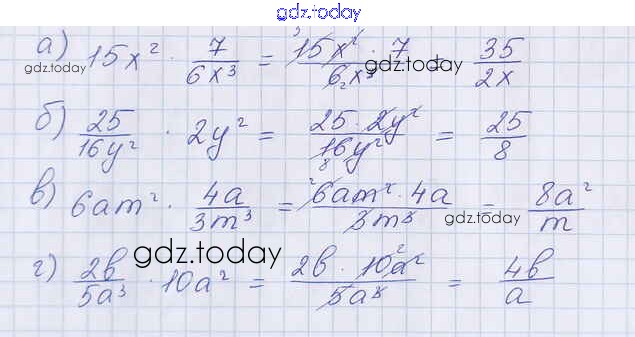 gdz.today
а) 15x² · 7/6x³ = 15x² · 7/6x³ = 35/2x
gdz.today gdz.today
б) 25/16y² · 2y² = 25 · 2y²/16y² = 25/8
в) 6am² · 4a/3m³ = 6am² · 4a/3m³ = 8a²/m
gdz.today
gdz.today
г) 2b/5a³ · 10a² = 2b · 10a²/5a³ = 4b/a